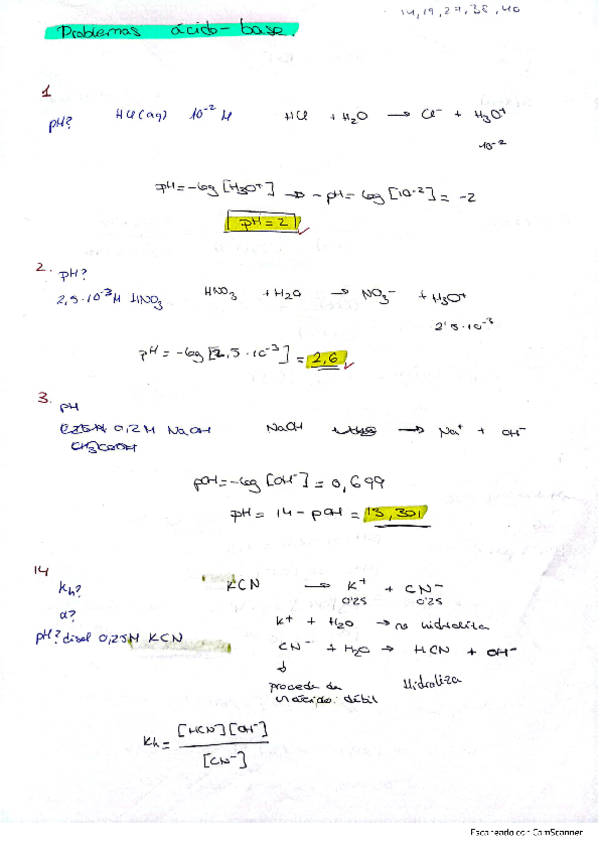 14, 19, 27, 38, 40
Problemas ácido-base.
1
pH? HCl(aq) 10⁻² M HCl + H₂O → Cl⁻ + H₃O⁺
10⁻²
pH = -log [H₃O⁺] → -pH = log [10⁻²] = -2
pH = 2
2. pH?
2,5·10⁻³ M HNO₃ HNO₃ + H₂O → NO₃⁻ + H₃O⁺
2'5·10⁻³
pH = -log [2,5·10⁻³] = 2,6
3. pH
0,2 M NaOH NaOH → Na⁺ + OH⁻
CH₃COOH
pOH = -log [OH⁻] = 0,699
pH = 14 - pOH = 13,301
14
Kh? KCN → K⁺ + CN⁻
0'25 0'25
α?
K⁺ + H₂O → no hidroliza
pH? disol 0,25M KCN CN⁻ + H₂O → HCN + OH⁻
↓
procede de Hidroliza
un ácido débil
Kh = [HCN][OH⁻]
[CN⁻]
Escaneado con CamScanner